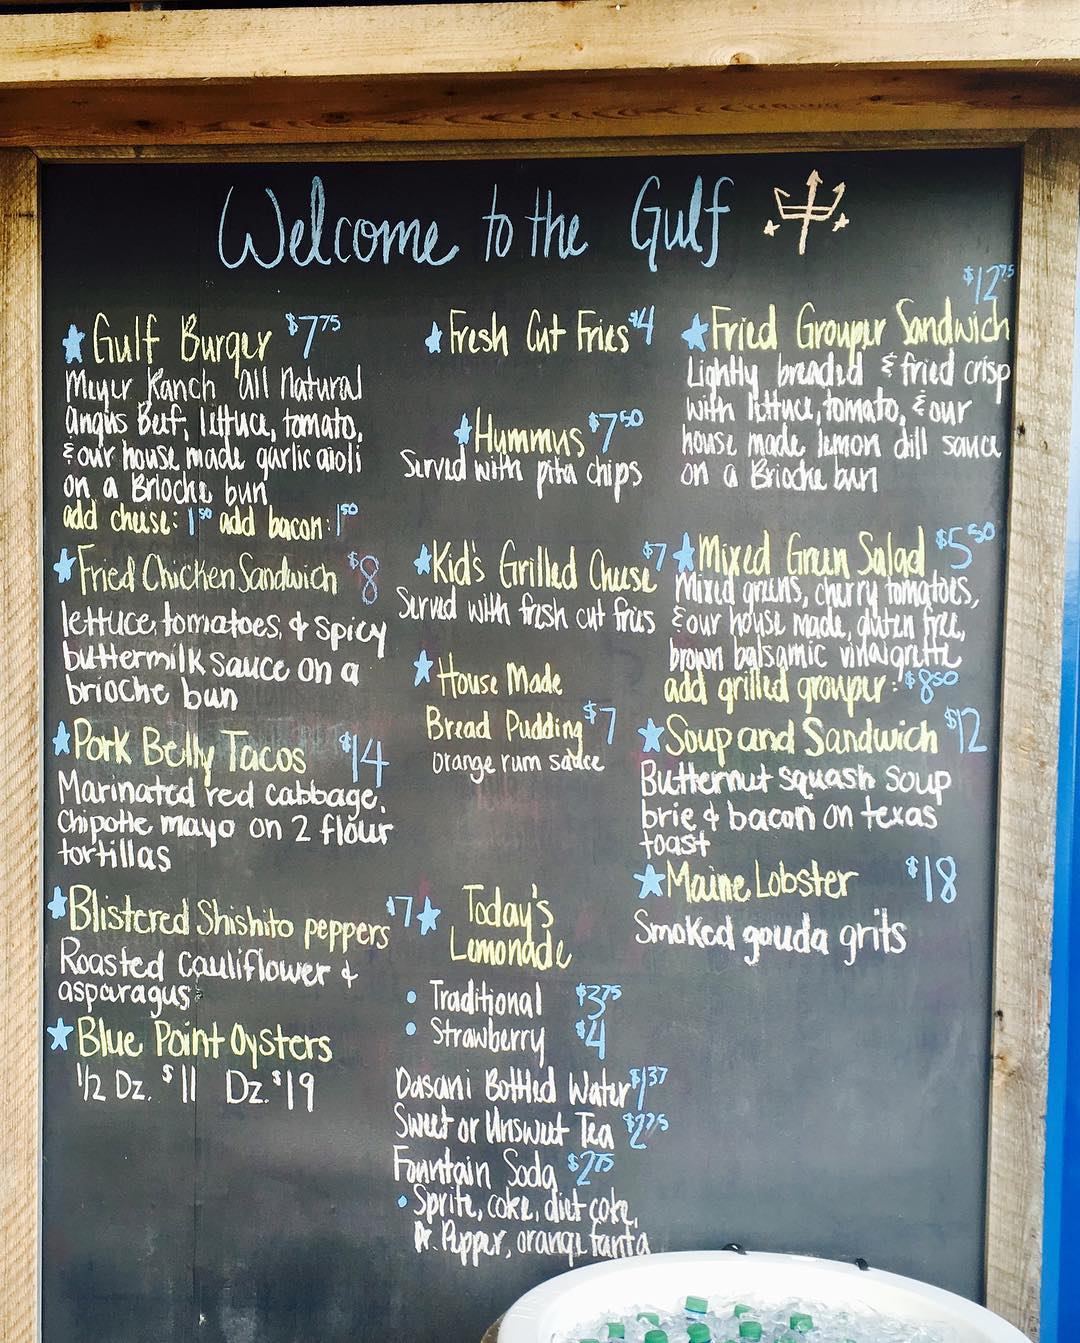 Welcome to the Gulf
Gulf Burger $7.75
Meyer Ranch all Natural
angus Beef, lettuce, tomato,
& our house made garlic aioli
on a Brioche bun
add cheese: 1.50 add bacon: 1.50
Fried Chicken Sandwich $8
lettuce, tomatoes, & spicy
buttermilk sauce on a
brioche bun
Pork Belly Tacos $14
Marinated red cabbage,
chipotle mayo on 2 flour
tortillas
Blistered Shishito peppers $7
Roasted cauliflower &
asparagus
Blue Point Oysters
1/2 Dz. $11 Dz. $19
Fresh Cut Fries $4
Hummus $7.50
Served with pita chips
Kid's Grilled Cheese $7
Served with fresh cut fries
House Made
Bread Pudding $7
orange rum sauce
Today's
Lemonade
• Traditional $3.75
• Strawberry $4
Dasani Bottled Water $1.37
Sweet or Unsweet Tea $2.75
Fountain Soda $2.75
• Sprite, coke, diet coke,
Dr. Pepper, orange fanta
$12.75
Fried Grouper Sandwich
Lightly breaded & fried crisp
with lettuce, tomato, & our
house made lemon dill sauce
on a Brioche bun
Mixed Green Salad $5.50
Mixed greens, cherry tomatoes,
& our house made, gluten free,
brown balsamic vinaigrette
add grilled grouper: $8.50
Soup and Sandwich $12
Butternut squash soup
brie & bacon on texas
toast
Maine Lobster $18
Smoked gouda grits